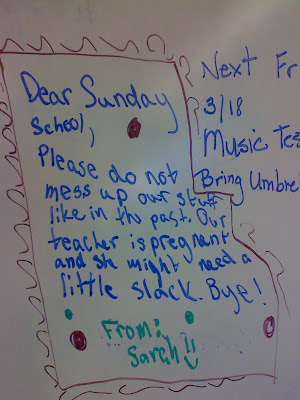 Dear Sunday
School,
Please do not
mess up our stuff
like in the past. Our
teacher is pregnant
and she might need a
little slack. Bye!
From:
Sarah
Next Fr
3/18
Music Tes
Bring Umbre